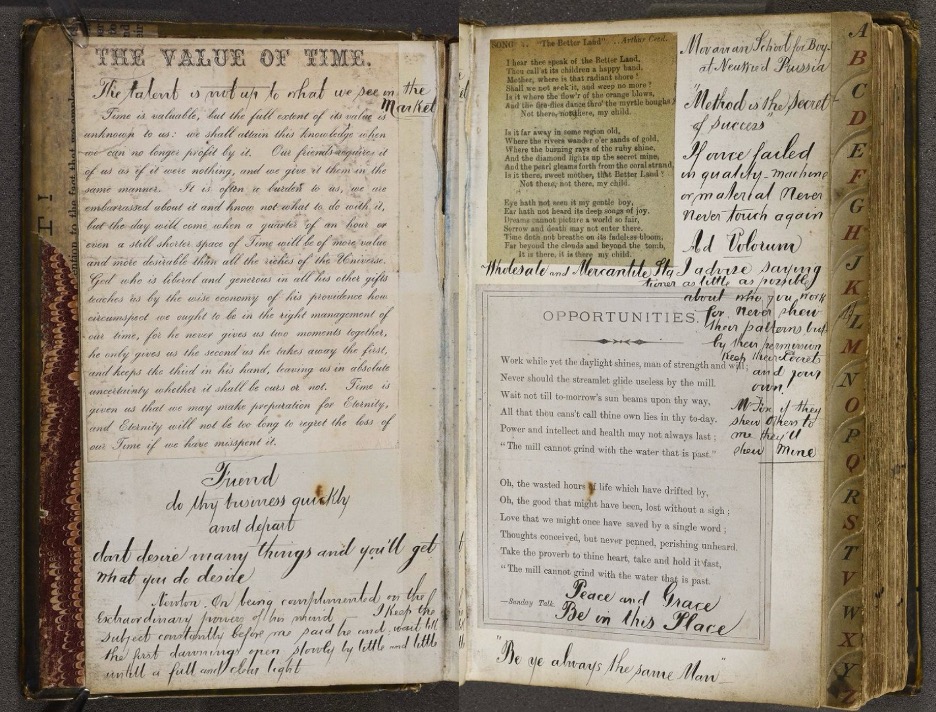 THE VALUE OF TIME.
The talent is not up to what we see in the
Market
Time is valuable, but the full extent of its value is
unknown to us: we shall attain this knowledge when
we can no longer profit by it. Our friends require it
of us as if it were nothing, and we give it them in the
same manner. It is often a burden to us, we are
embarrassed about it and know not what to do with it,
but the day will come when a quarter of an hour or
even a still shorter space of Time will be of more value
and more desirable than all the riches of the Universe.
God who is liberal and generous in all his other gifts
teaches us by the wise economy of his providence how
circumspect we ought to be in the right management of
our time, for he never gives us two moments together,
he only gives us the second as he takes away the first,
and keeps the third in his hand, leaving us in absolute
uncertainty whether it shall be ours or not. Time is
given us that we may make preparation for Eternity,
and Eternity will not be too long to regret the loss of
our Time if we have misspent it.
Friend
do thy business quickly
and depart
dont desire many things and you'll get
what you do desire
Newton. On being complimented on the
Extraordinary powers of his mind I keep the
subject constantly before me said he and wait till
the first dawnings open slowly by little and little
untill a full and clear light
SONG .. "The Better Land" .. Arthur Cecil.
I hear thee speak of the Better Land,
Thou call'st its children a happy band,
Mother, where is that radiant shore!
Shall we not seek it, and weep no more!
Is it where the flow'r of the orange blows,
And the fire-flies dance thro' the myrtle boughs?
Not there, not there, my child.
Is it far away in some region old,
Where the rivers wander o'er sands of gold,
Where the burning rays of the ruby shine,
And the diamond lights up the secret mine,
And the pearl gleams forth from the coral strand,
Is it there, sweet mother, that Better Land?
Not there; not there, my child.
Eye hath not seen it my gentle boy,
Ear hath not heard its deep songs of joy,
Dreams cannot picture a world so fair,
Sorrow and death may not enter there.
Time doth not breathe on its fadeless bloom,
Far beyond the clouds and beyond the tomb,
It is there, it is there my child.
Moravian School for Boys
at Neuwied Prussia
"Method is the Secret
of Success"
If once failed
in quality - machine
or material Never
Never touch again
Ad Valorum
Wholesale and Mercantile Sta
tioner
I advise saying
as little as possible
about who you work
for, never show
their patterns but
by their permission
Keep their Secrets
and your
own
Mr Fox if they
shew others to
me they'll
shew Mine
OPPORTUNITIES.
Work while yet the daylight shines, man of strength and will;
Never should the streamlet glide useless by the mill.
Wait not till to-morrow's sun beams upon thy way,
All that thou cans't call thine own lies in thy to-day.
Power and intellect and health may not always last;
"The mill cannot grind with the water that is past."
Oh, the wasted hours of life which have drifted by,
Oh, the good that might have been, lost without a sigh;
Love that we might once have saved by a single word;
Thoughts conceived, but never penned, perishing unheard.
Take the proverb to thine heart, take and hold it fast,
"The mill cannot grind with the water that is past.
—Sunday Talk.
Peace and Grace
Be in this Place
"Be ye always the same Man"
A
B
C
D
E
F
G
H
J
K
L
M
N
O
P
Q
R
S
T
V
W
X
Y
Z